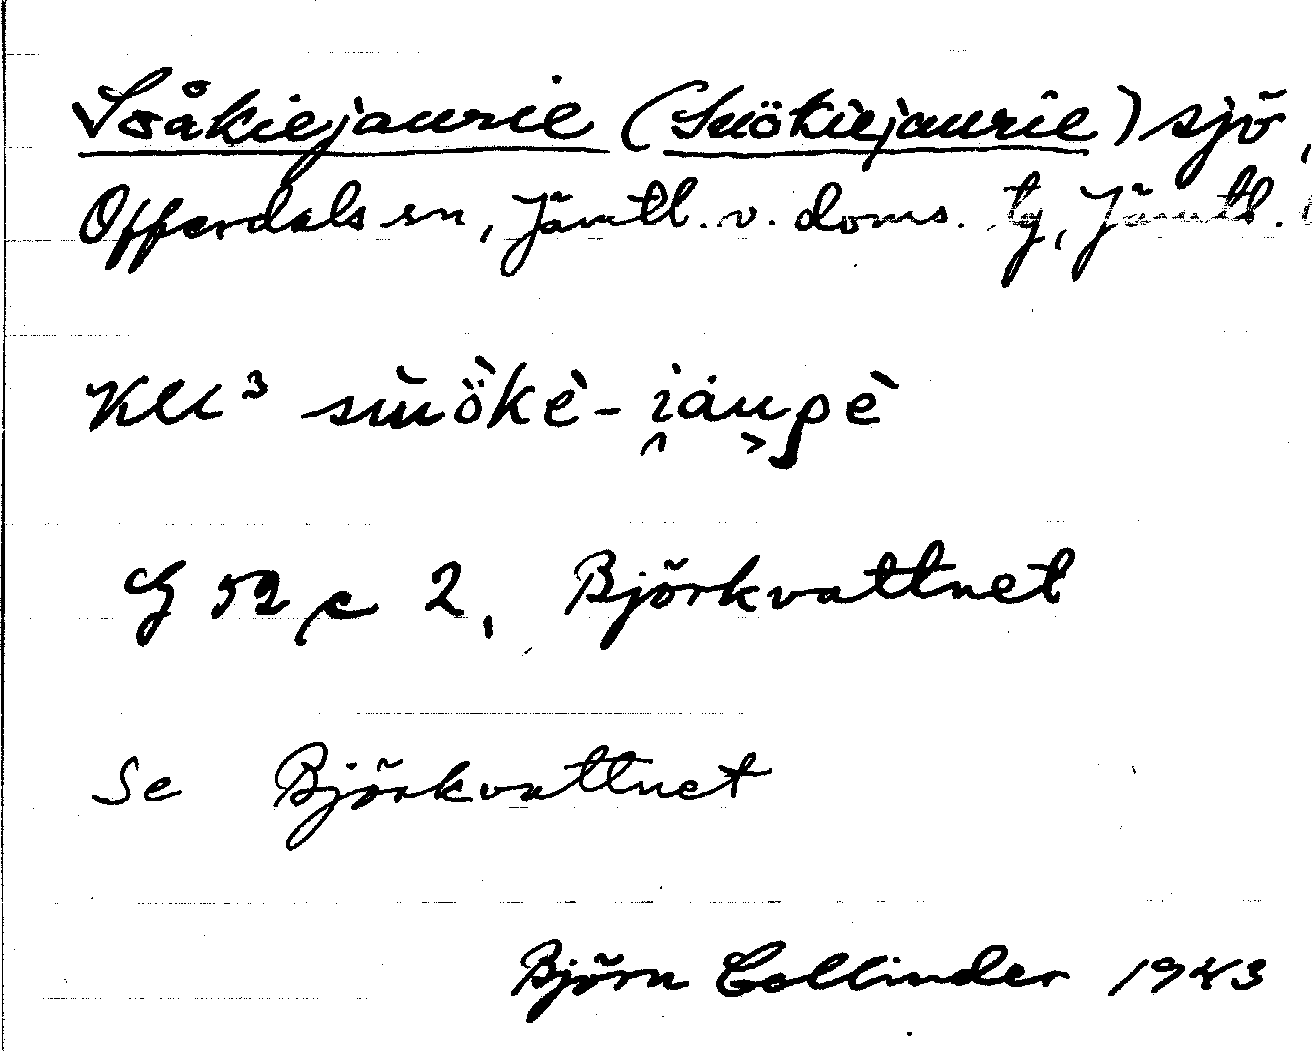 Soåkiejaurie (Suökiejaurie) sjö,
Offerdals sn, Jämtl. v. doms. tg, Jämtl.
KLL³ suu̇ökė-i̯ȧupė
G 52 c 2, Björkvattnet
Se Björkvattnet
Björn Collinder 1943